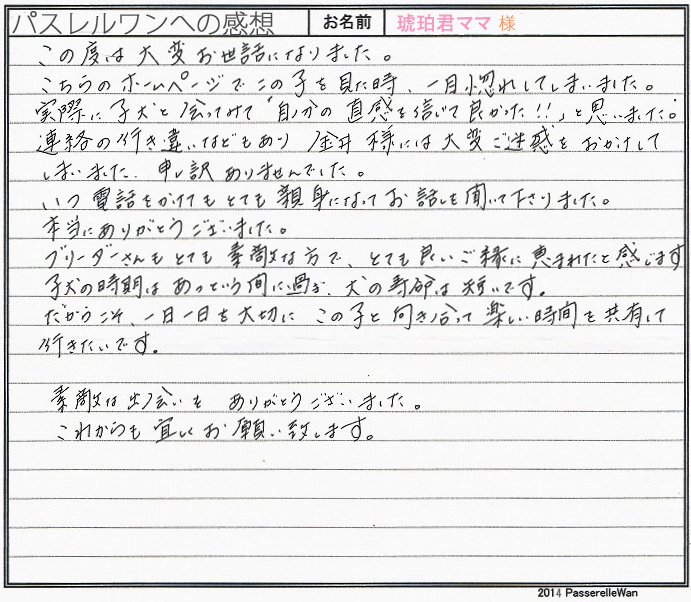 パスレルワンへの感想 お名前 琥珀君ママ 様
この度は大変お世話になりました。
こちらのホームページでこの子を見た時、一目惚れしてしまいました。
実際に子犬と会ってみて「自分の直感を信じて良かった!!」と思いました。
連絡の行き違いなどもあり 金井様には大変ご迷惑をおかけして
しまいました。申し訳ありませんでした。
いつ電話をかけてもとても親身になってお話しを聞いて下さりました。
本当にありがとうございました。
ブリーダーさんもとても素敵な方で、とても良いご縁に恵まれたと感じます
子犬の時期はあっという間に過ぎ、犬の寿命は短いです。
だからこそ、一日一日を大切に この子と向き合って楽しい時間を共有して
行きたいです。
素敵な出会いを ありがとうございました。
これからも宜しくお願い致します。
2014 PasserelleWan